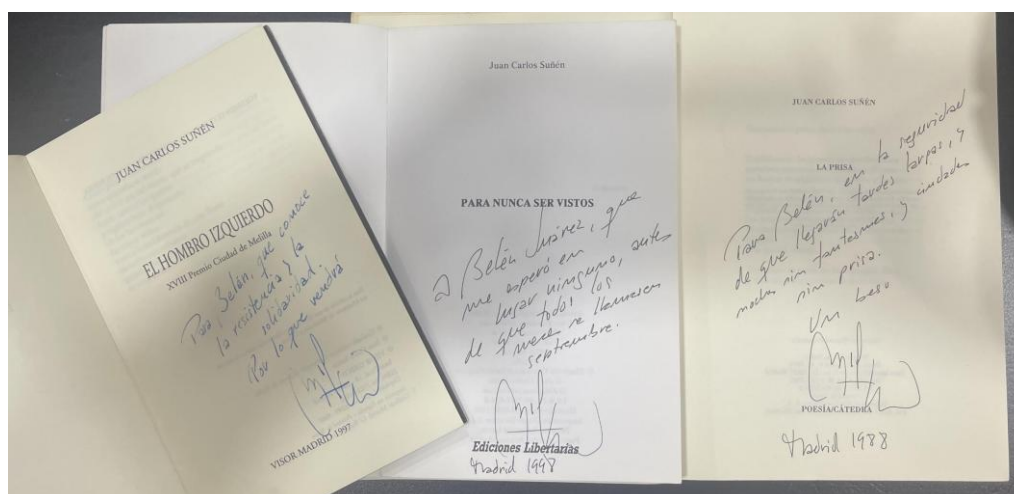 JUAN CARLOS SUÑÉN
EL HOMBRO IZQUIERDO
XVIII Premio Ciudad de Melilla
Para Belén, que conoce
la resistencia y la
solidaridad.
Por lo que vendrá
VISOR MADRID 1997
Juan Carlos Suñén
PARA NUNCA SER VISTOS
A Belén Juárez, que
me esperó en
lugar ninguno, antes
de que todos los
meses se llamasen
septiembre.
Ediciones Libertarias
Madrid 1998
JUAN CARLOS SUÑÉN
LA PRISA
Para Belén, en la seguridad
de que llegarán tardes largas, y
noches sin fantasmas, y ciudades
sin prisa.
Un beso
POESÍA/CÁTEDRA
Madrid 1988